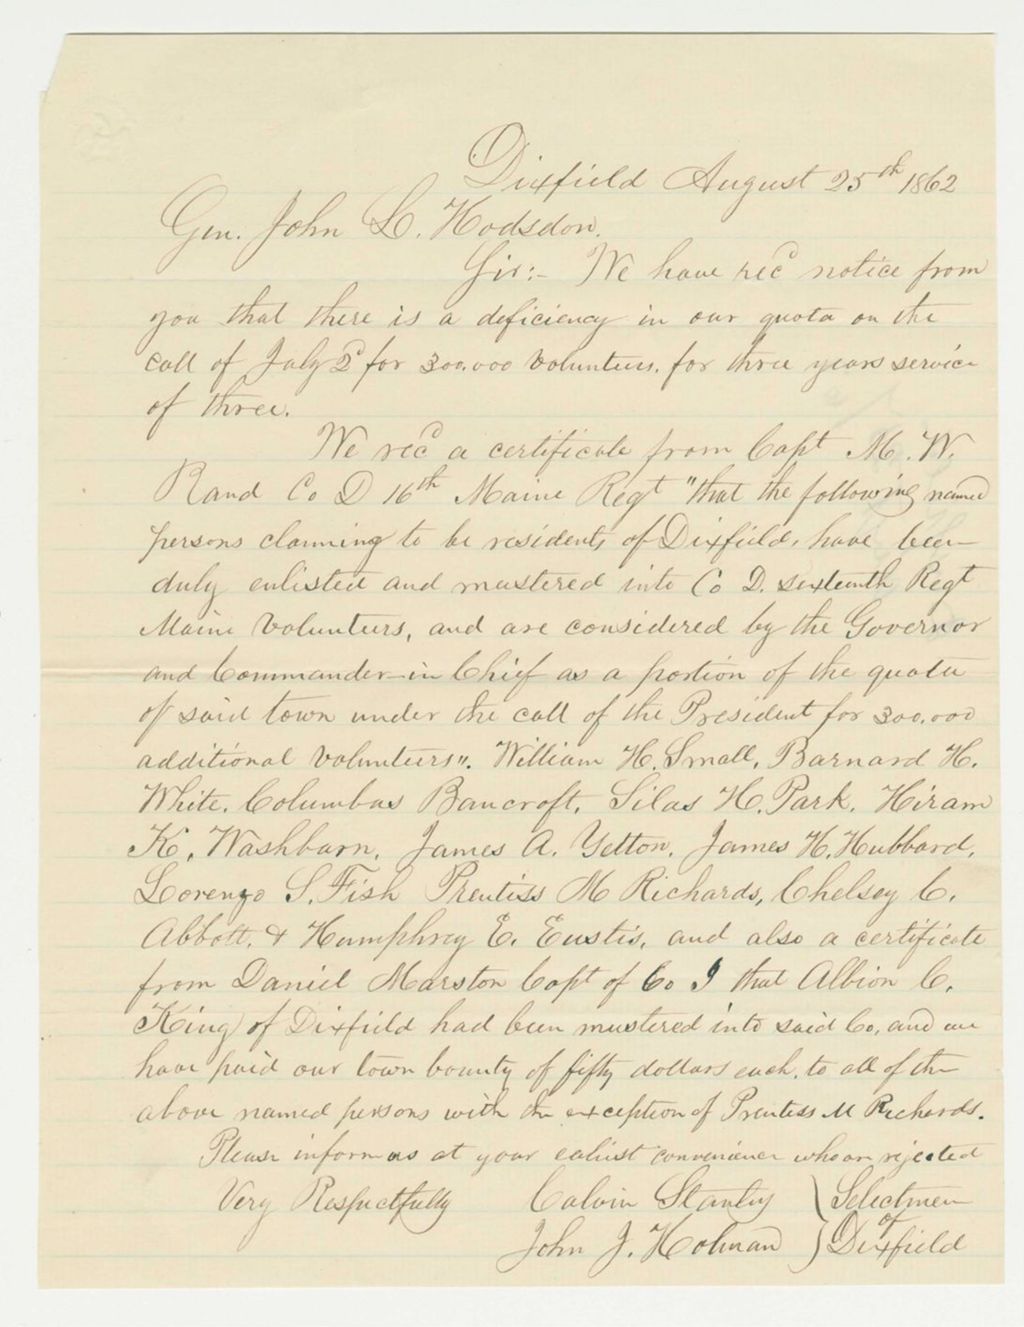 Dixfield August 25th 1862
Gen. John L. Hodsdon.
Sir:- We have rec'd notice from
you that there is a deficiency in our quota on the
call of July 2d for 300,000 volunteers, for three years service
of three.
We rec'd a certificate from Capt M. W.
Rand Co D 16th Maine Regt "that the following named
persons claiming to be residents of Dixfield, have been
duly enlisted and mustered into Co D. sixteenth Regt
Maine Volunteers, and are considered by the Governor
and Commander-in Chief as a portion of the quota
of said town under the call of the President for 300,000
additional volunteers". William H. Small, Barnard H.
White. Columbus Bancroft, Silas H. Park, Hiram
K. Washburn, James A. Yetton, James H. Hubbard,
Lorenzo S. Fish Prentiss M Richards, Chelsey C.
Abbott, & Humphrey E. Eustis, and also a certificate
from Daniel Marston Capt of Co I that Albion C.
King of Dixfield had been mustered into said Co, and we
have paid our town bounty of fifty dollars each, to all of the
above named persons with the exception of Prentiss M Richards.
Please inform us at your earliest convenience who are rejected
Very Respectfully Calvin Stanley } Selectmen
of
John J. Holman } Dixfield